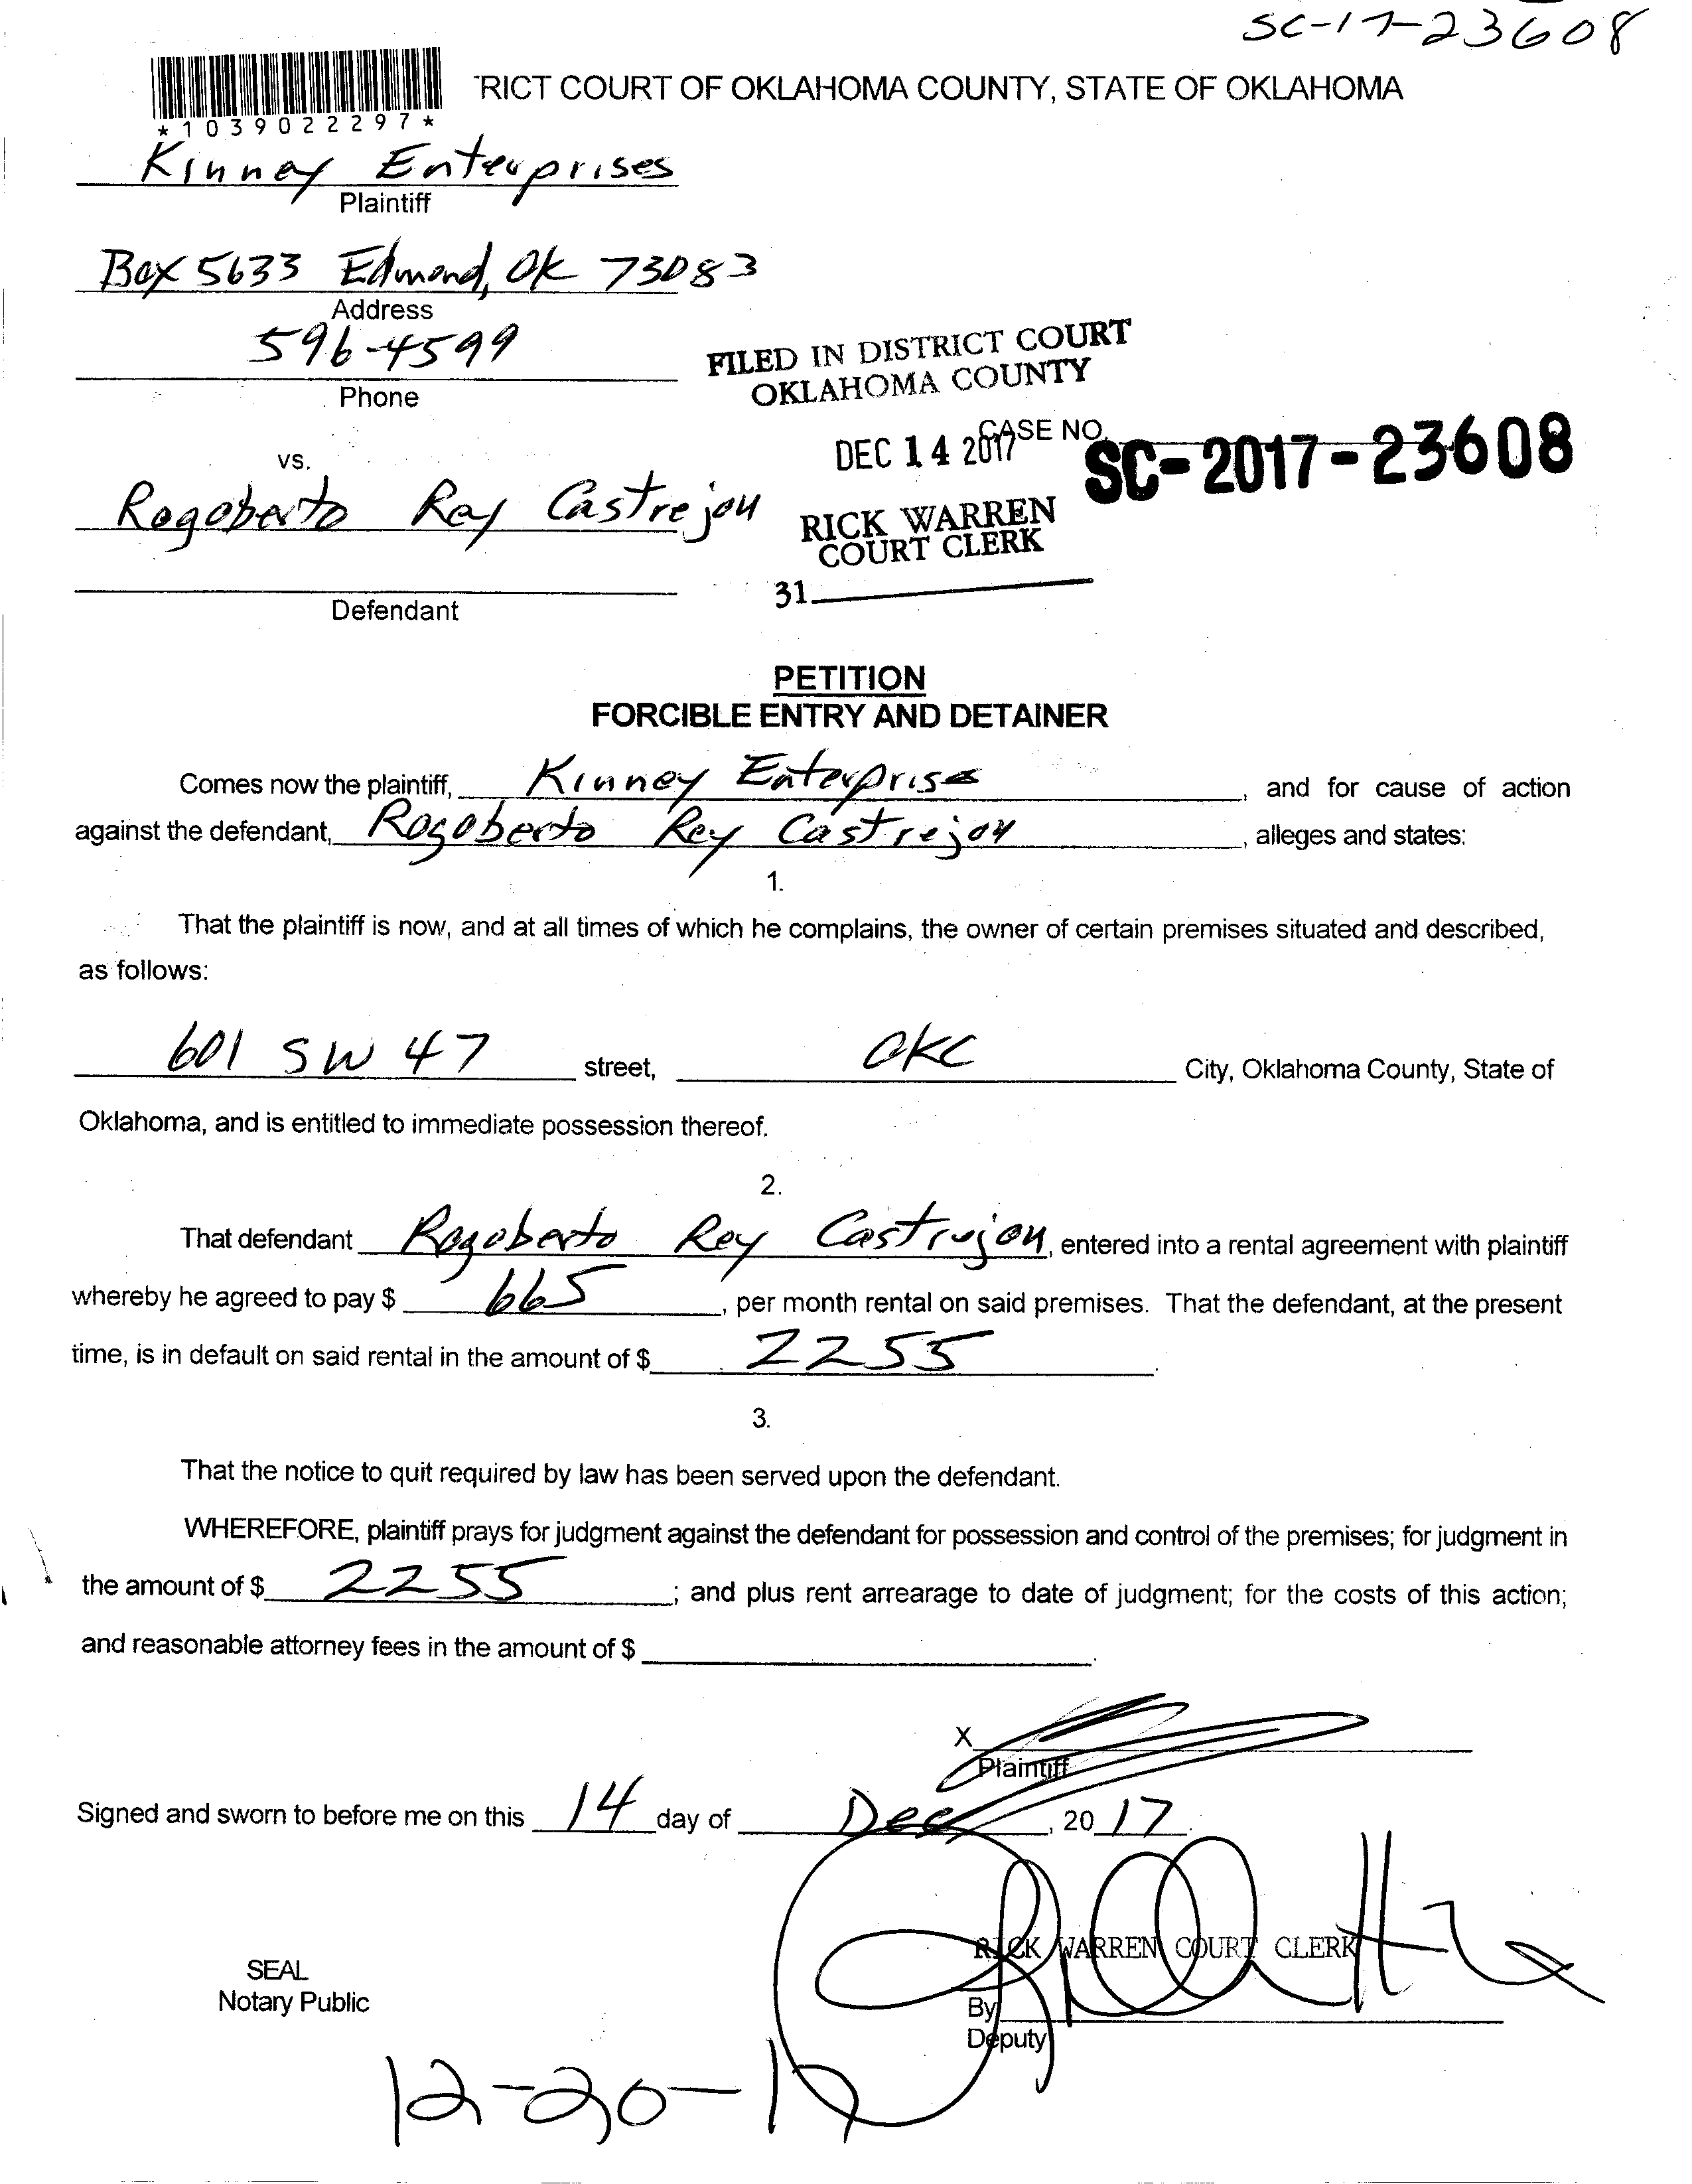 SC-17-23608
*1039022297*
RICT COURT OF OKLAHOMA COUNTY, STATE OF OKLAHOMA
Kinney Enterprises
Plaintiff
Box 5633 Edmond, OK 73083
Address
596-4599
Phone
FILED IN DISTRICT COURT
OKLAHOMA COUNTY
DEC 14 2017
CASE NO.
SC-2017-23608
vs.
Rogoberto Rey Castrejon
RICK WARREN
COURT CLERK
31
Defendant
PETITION
FORCIBLE ENTRY AND DETAINER
Comes now the plaintiff, Kinney Enterprises, and for cause of action
against the defendant, Rogoberto Rey Castrejon, alleges and states:
1.
That the plaintiff is now, and at all times of which he complains, the owner of certain premises situated and described,
as follows:
601 SW 47 street, OKC City, Oklahoma County, State of
Oklahoma, and is entitled to immediate possession thereof.
2.
That defendant Rogoberto Rey Castrejon, entered into a rental agreement with plaintiff
whereby he agreed to pay $ 665, per month rental on said premises. That the defendant, at the present
time, is in default on said rental in the amount of $ 2255.
3.
That the notice to quit required by law has been served upon the defendant.
WHEREFORE, plaintiff prays for judgment against the defendant for possession and control of the premises; for judgment in
the amount of $ 2255; and plus rent arrearage to date of judgment; for the costs of this action;
and reasonable attorney fees in the amount of $ .
X
Plaintiff
Signed and sworn to before me on this 14 day of Dec, 20 17.
RICK WARREN COURT CLERK
SEAL
Notary Public
By
Deputy
12-20-17